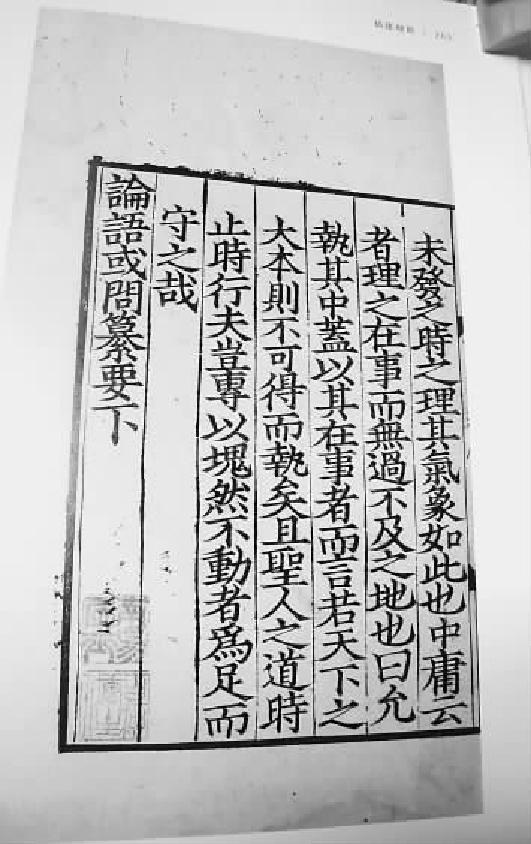 未發之時之理其氣象如此也中庸云
者理之在事而無過不及之地也曰允
執其中蓋以其在事者而言若天下之
大本則不可得而執矣且聖人之道時
止時行夫豈專以塊然不動者爲足而
守之哉
論語或問纂要下